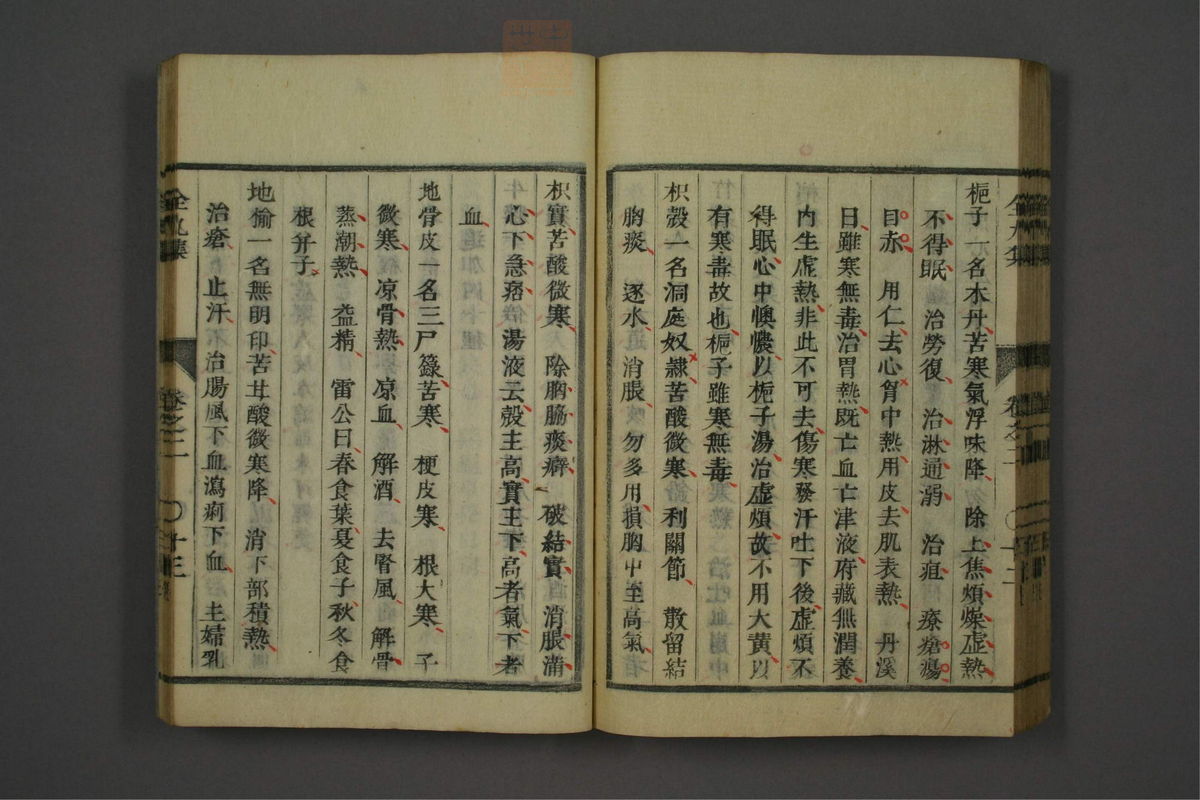 梔子一名木丹苦寒氣浮味降 除上焦煩燥虛熱
不得眠 治勞復 治淋通溺 治疽 療瘡瘍
目赤 用仁去心胷中熱用皮去肌表熱 丹溪
曰雖寒無毒治胃熱旣亡血亡津液府藏無潤養
內生虛熱非此不可去傷寒發汗吐下後虛煩不
得眠心中懊憹以梔子湯治虛煩故不用大黃以
有寒毒故也梔子雖寒無毒
枳殼一名洞庭奴隸苦酸微寒 利關節 散留結
胸痰 逐水 消脹 勿多用損胸中至高氣
枳實苦酸微寒 除胸脇痰癖 破結實 消脹滿
心下急痞 湯液云殼主高實主下高者氣下者
血
地骨皮一名三尸籙苦寒 梗皮寒 根大寒 子
微寒 凉骨熱 凉血 解酒 去腎風 解骨
蒸潮熱 益精 雷公曰春食葉夏食子秋冬食
根并子
地偷一名無明印苦甘酸微寒降 消下部積熱
治瘡 止汗 治腸風下血瀉痢下血 主婦乳
全九集
卷之二
十三